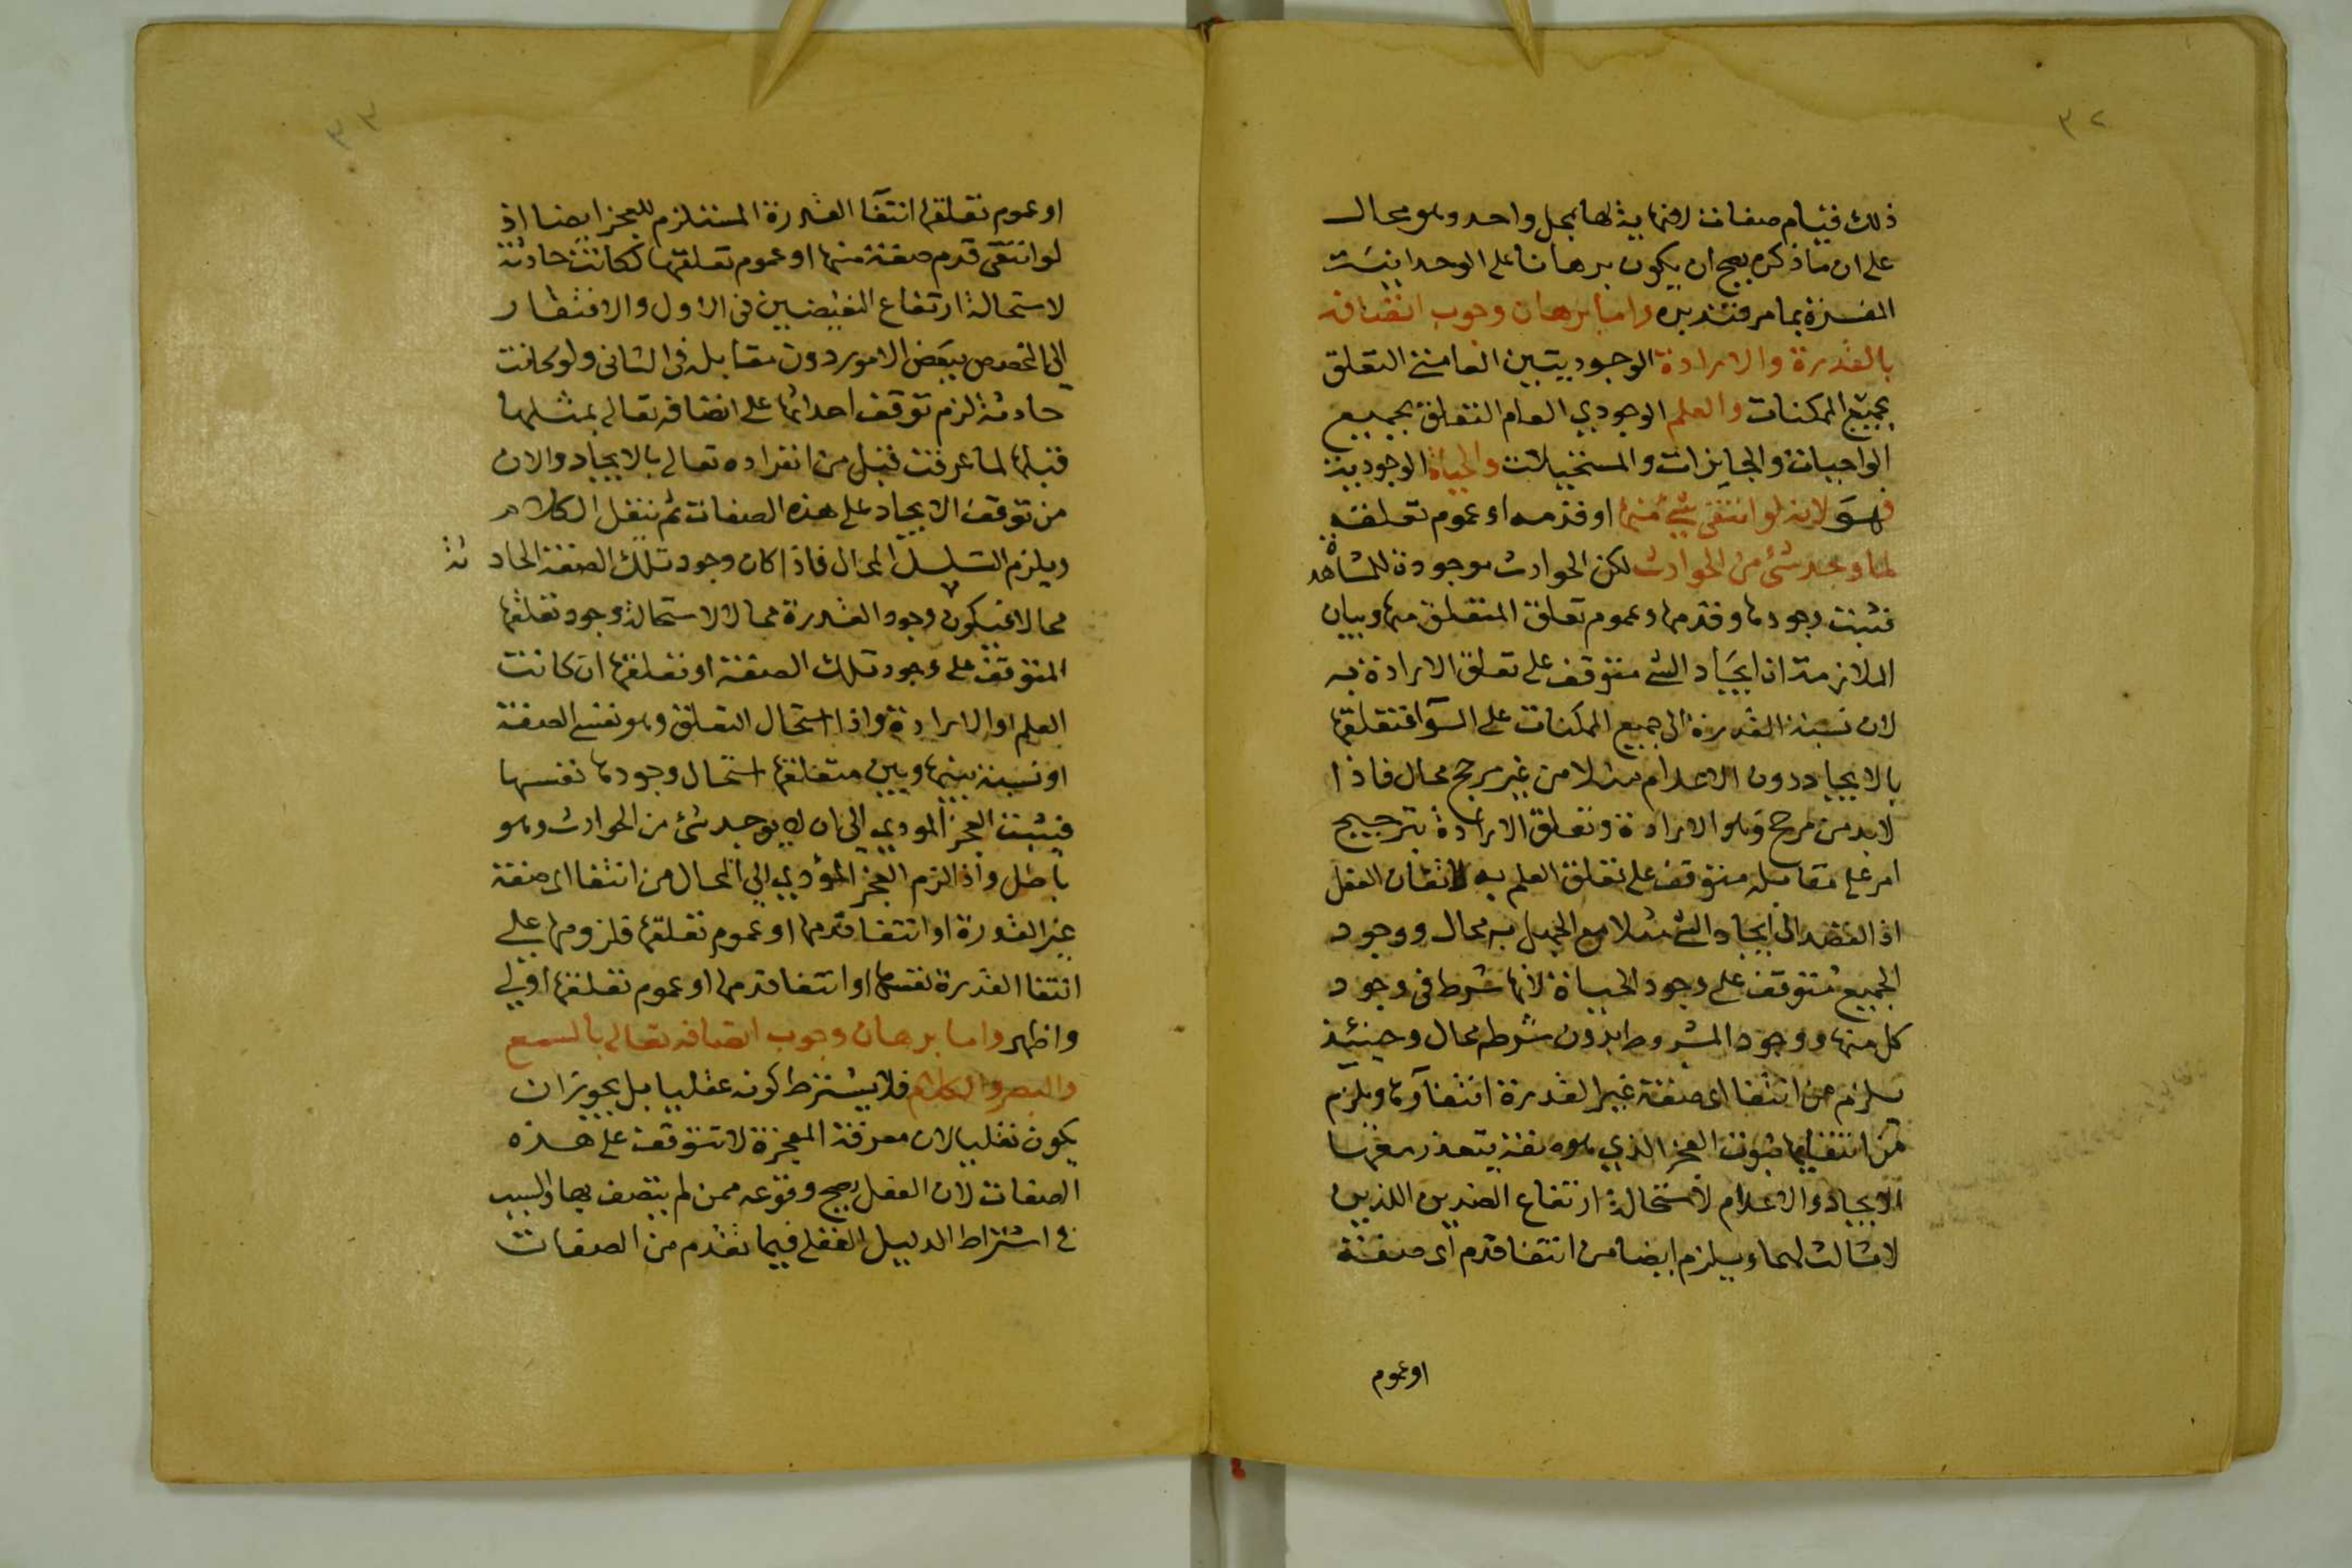 ٣٢
ذلك قيام صفات لا نهاية لها بمحل واحد وهو محال
على ان ما ذكره يصح ان يكون برهانا على الوحدانية
المفسرة بما مر فتدبره واما برهان وجوب اتصافه
بالقدرة والارادة الوجوديتين العامتي التعلق
بجميع الممكنات والعلم الوجودي العام التعلق بجميع
الواجبات والجايزات والمستحيلات والحياة الوجودية
فهو لانه لو انتفى شئ منها او قدمه او عموم تعلقه
لما وجد شئ من الحوادث لكن الحوادث موجودة للمشاهدة
فثبت وجودها وقدمها وعموم تعلق المتعلق منها وبيان
الملازمة ان ايجاد الشئ متوقف على تعلق الارادة به
لان نسبة القدرة الى جميع الممكنات على السوآ فتعلقها
بالايجاد دون الاعدام مثلا من غير مرجح محال فاذا
لابد من مرجح وهو الارادة وتعلق الارادة بترجيح
امر على مقابله متوقف على تعلق العلم به لاتقان الفعل
اذ القصد الى ايجاد الشئ مثلا مع الجهل به محال ووجود
الجميع متوقف على وجود الحياة لانها شرط في وجود
كل منها ووجود المشروط بدون شرطه محال وحينئذ
يلزم من انتفا اى صفة غير القدرة انتفآوها ويلزم
من انتفايها ثبوت العجز الذي هو صفة يتعذر معها
الايجاد والاعدام لاستحالة ارتفاع الضدين اللذين
لا ثالث لهما ويلزم ايضا من انتفا قدم اى صفة
او عموم
٣٣
او عموم تعلقها انتفآ القدرة المستلزم للعجز ايضا اذ
لو انتفى قدم صفة منها او عموم تعلقها لكانت حادثة
لاستحالة ارتفاع النقيضين في الاول والافتقار
الى المخصص ببعض الامور دون مقابله في الثاني ولو كانت
حادثة لزم توقف احداثها على اتصافه تعالى بمثلها
قبلها لما عرفت قبل من انفراده تعالى بالايجاد والان
من توقف الايجاد على هذه الصفات ثم ننقل الكلام
ويلزم التسلسل المحال فاذا كان وجود تلك الصفة الحادثة
محالا فيكون وجود القدرة محالا لاستحالة وجود تعلقها
المتوقف على وجود تلك الصفة او تعلقها ان كانت
العلم او الارادة واذا استحال التعلق وهو نفسي الصفة
او نسبة بينها وبين متعلقها استحال وجودها نفسها
فيثبت العجز المودي الى ان لا يوجد شئ من الحوادث وهو
باطل واذا لزم العجز المؤدي الى المحال من انتفا اى صفة
غير القدرة او انتفا قدمها او عموم تعلقها فلزومها على
انتفا القدرة نفسها او انتفا قدمها او عموم تعلقها اولى
واظهر واما برهان وجوب اتصافه تعالى بالسمع
والبصر والكلام فلا يشترط كونه عقليا بل يجوز ان
يكون نقليا لان معرفة المعجزة لا تتوقف على هذه
الصفات لان العقل يصحح وقوعه ممن لم يتصف بها والسبب
في اشتراط الدليل العقلي فيما تقدم من الصفات